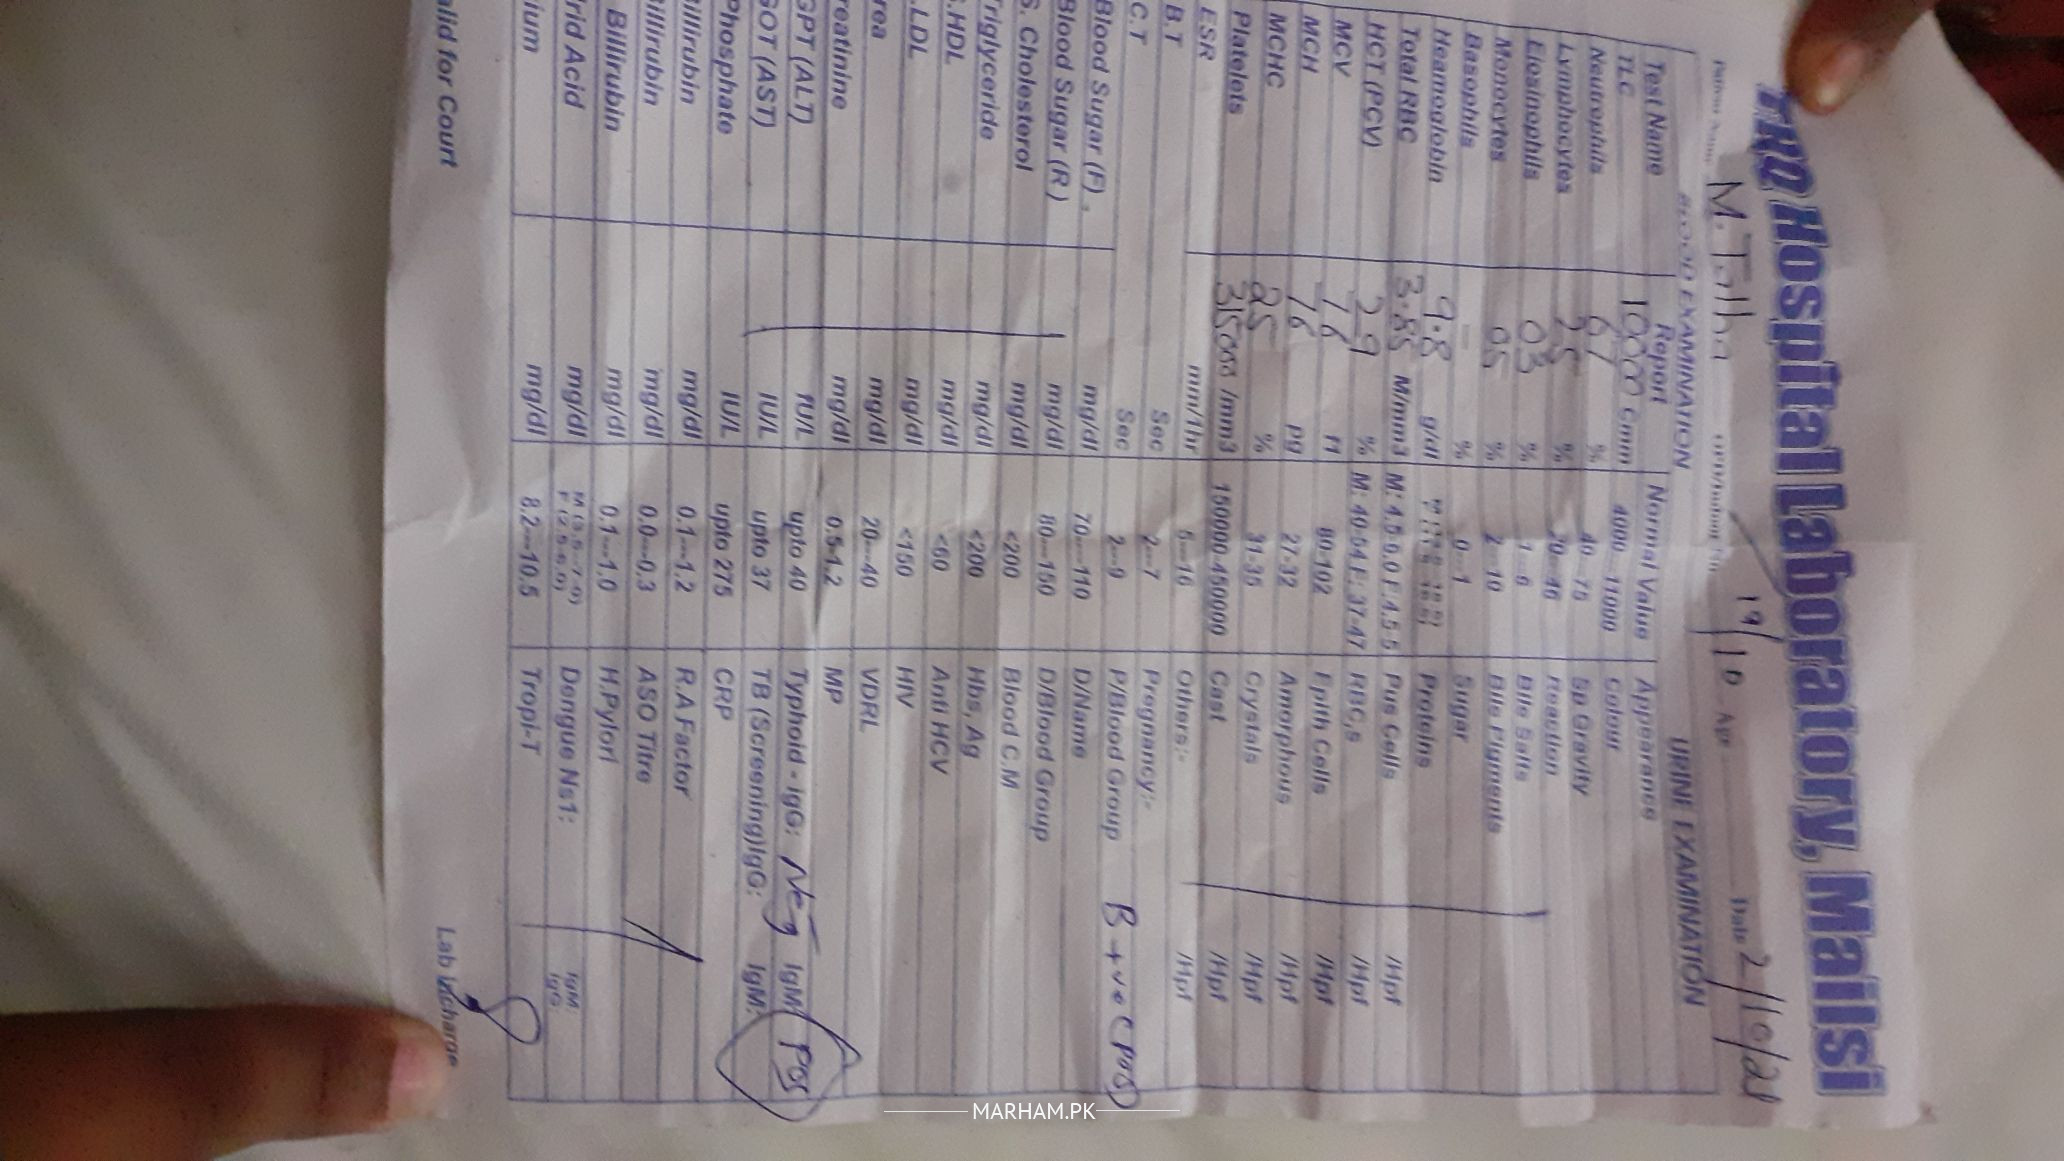 THQ Hospital Laboratory, Mailsi
M. Talha 19/10 Age Date 2/10/21
BLOOD EXAMINATION URINE EXAMINATION
Test Name Report Normal Value Appearance
TLC 10000 Cmm 4000---11000 Colour
Neutrophils 67 % 40---75 Sp Gravity
Lymphocytes 25 % 20---45 Reaction
Eiosinophils 03 % 1---6 Bile Salts
Monocytes 05 % 2---10 Bile Pigments
Basophils — % 0---1 Sugar
Heamoglobin 9.8 g/dl Proteins
Total RBC 3.85 M/mm3 M: 4.5-6.0 F: 4.5-5 Pus Cells /Hpf
HCT (PCV) 29 % M: 40-54 F: 37-47 RBC,s /Hpf
MCV 76 fl 80-102 Epith Cells /Hpf
MCH 26 pg 27-32 Amorphous /Hpf
MCHC 25 % 31-35 Crystals /Hpf
Platelets 315000 /mm3 150000-450000 Cast /Hpf
ESR mm/1hr 5---15 Others:- /Hpf
B.T Sec 2---7 Pregnancy:-
C.T Sec 2---9 P/Blood Group B +ve (Pos)
Blood Sugar (F) mg/dl 70---110 D/Name
Blood Sugar (R) mg/dl 80---150 D/Blood Group
S. Cholesterol mg/dl <200 Blood C.M
Triglyceride mg/dl <200 Hbs, Ag
.HDL mg/dl <60 Anti HCV
.LDL mg/dl <150 HIV
rea mg/dl 20---40 VDRL
reatinine mg/dl 0.5-1.2 MP
GPT (ALT) IU/L upto 40 Typhoid - IgG: Neg IgM Pos
GOT (AST) IU/L upto 37 TB (Screening)IgG: IgM:
Phosphate IU/L upto 275 CRP
Billirubin mg/dl 0.1---1.2 R.A Factor
Billirubin mg/dl 0.0---0.3 ASO Titre
Billirubin mg/dl 0.1---1.0 H.Pylori
rid Acid mg/dl M (3.5---7.0) F (2.5-6.0) Dengue Ns1: IgM: IgG:
ium mg/dl 8.2---10.5 Tropi-T
alid for Court Lab Incharge
MARHAM.PK